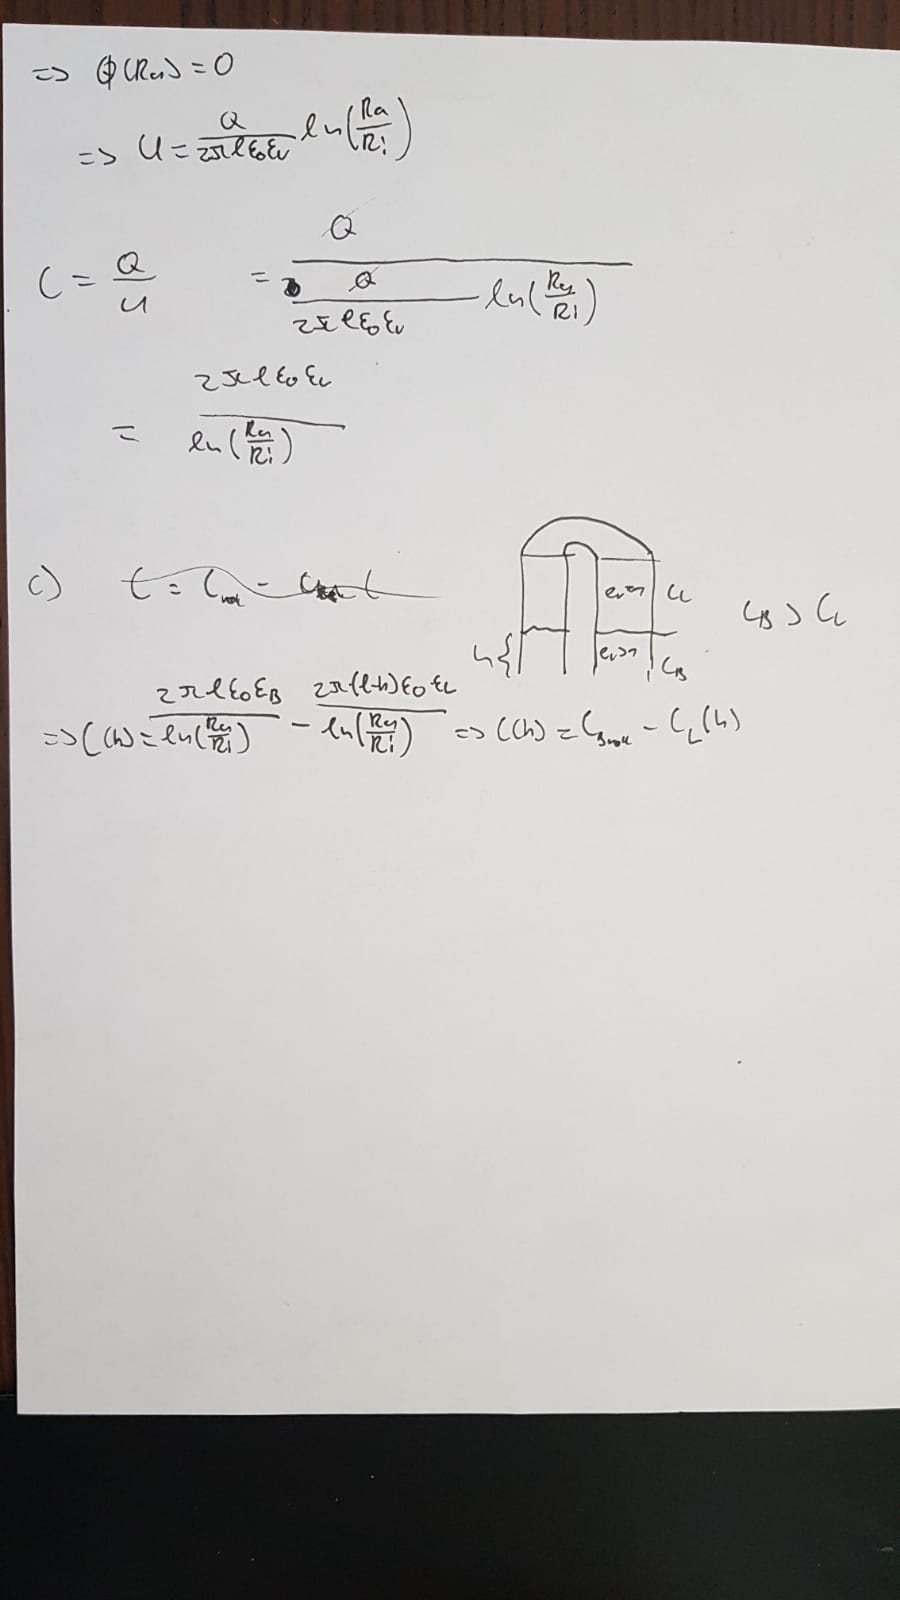 => ϕ(Ra) = 0
=> U = Q/(2πlε₀εᵣ) ln(Ra/Ri)
C = Q/U = Q/(Q/(2πlε₀εᵣ) ln(Ra/Ri))
= 2πlε₀εᵣ/ln(Ra/Ri)
c)
εᵣ=1 CL
CB > CL
h{ εᵣ>1 CB
=> C(h) = 2πlε₀εB/ln(Ra/Ri) - 2π(l-h)ε₀εL/ln(Ra/Ri) => C(h) = CBvoll - CL(h)